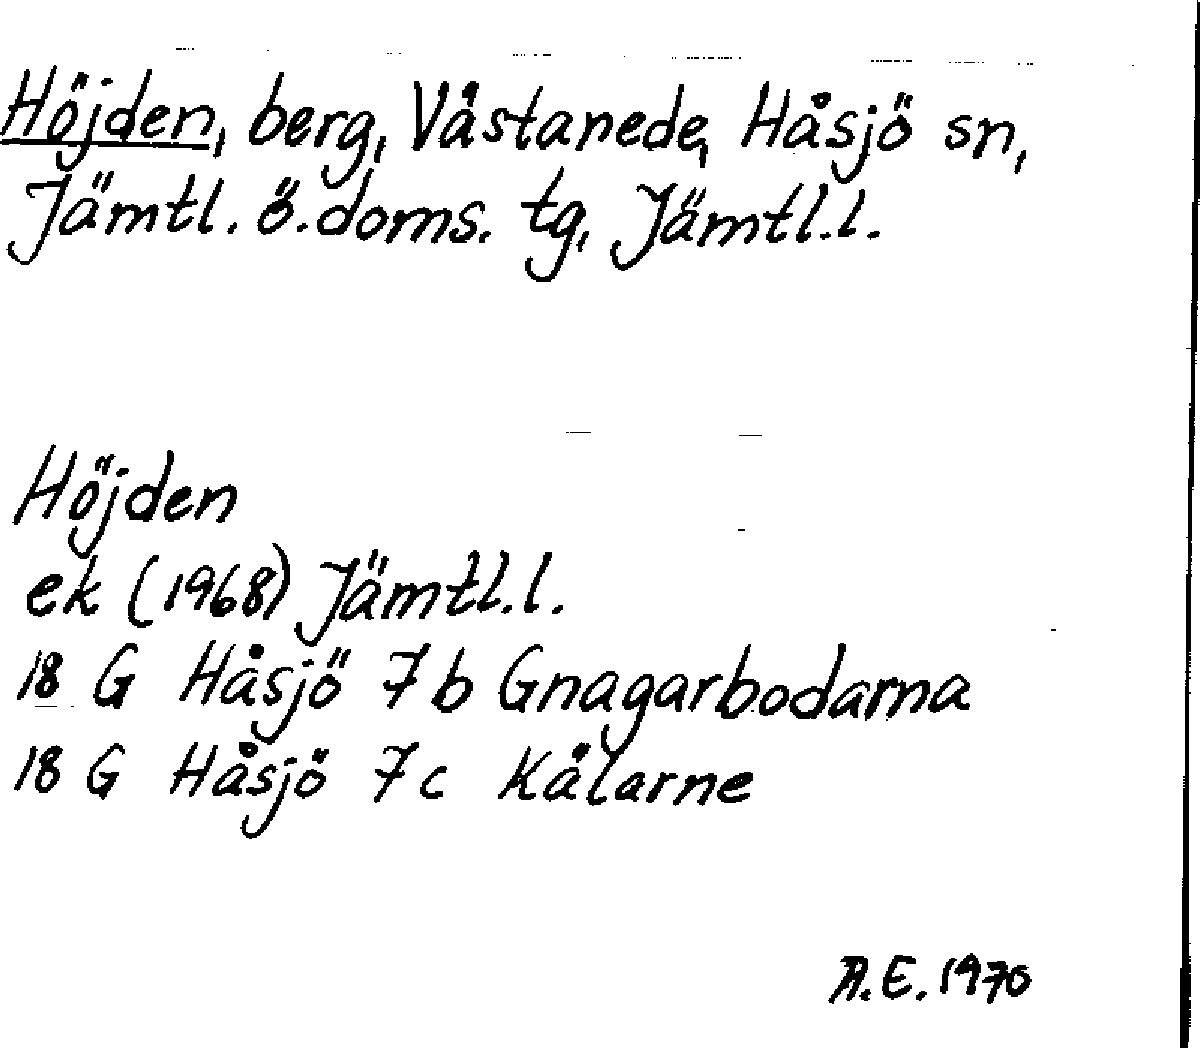 Höjden, berg, Våstanede, Håsjö sn,
Jämtl. ö. doms. tg, Jämtl.l.
Höjden
ek (1968) Jämtl.l.
18 G Håsjö 7b Gnagarbodarna
18 G Håsjö 7c Kålarne
A.E. 1970